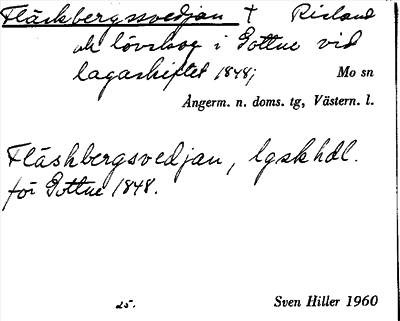 Fläskbergssvedjan † Risland
och lövskog i Gottne vid
lagaskiftet 1848;
Mo sn
Ångerm. n. doms. tg, Västern. l.
Fläskbergsvedjan, lgsk hdl.
för Gottne 1848.
25.
Sven Hiller 1960